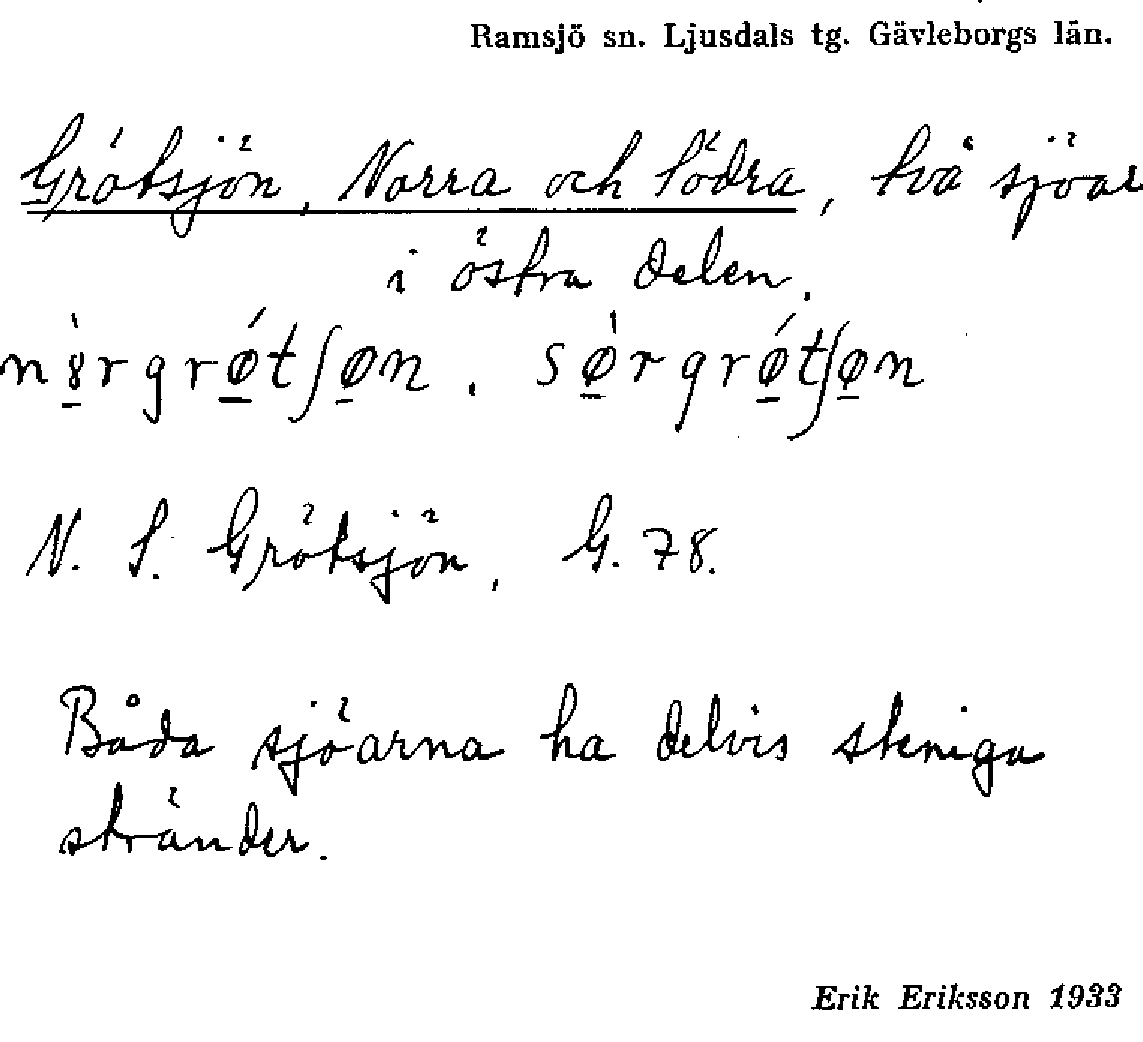 Ramsjö sn. Ljusdals tg. Gävleborgs län.
Grötsjön, Norra och Södra, två sjöar
i östra delen.
N. S. Grötsjön, G. 78.
Båda sjöarna ha delvis steniga
stränder.
Erik Eriksson 1933